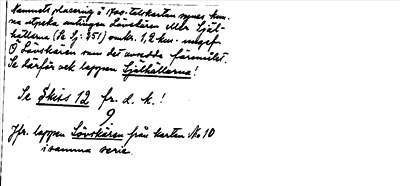 Namnets placering å 1700-talskartan synes kun-
na utpeka antingen Lövskären eller Själ-
hällarna (Se Sj: 351) omkr. 1,2 km.
O Lövskären vara det avsedda föremålet.
Se härför ock lappen Själhällarna!
Se Skiss 12 fr. d. k.!
9
Jfr. lappen Lövskären från kartan No 10
i samma serie.